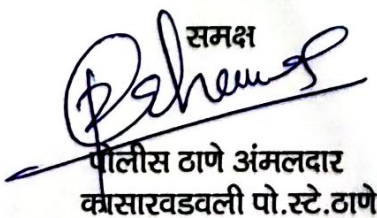 समक्ष
पोलीस ठाणे अंमलदार
कासारवडवली पो.स्टे.ठाणे